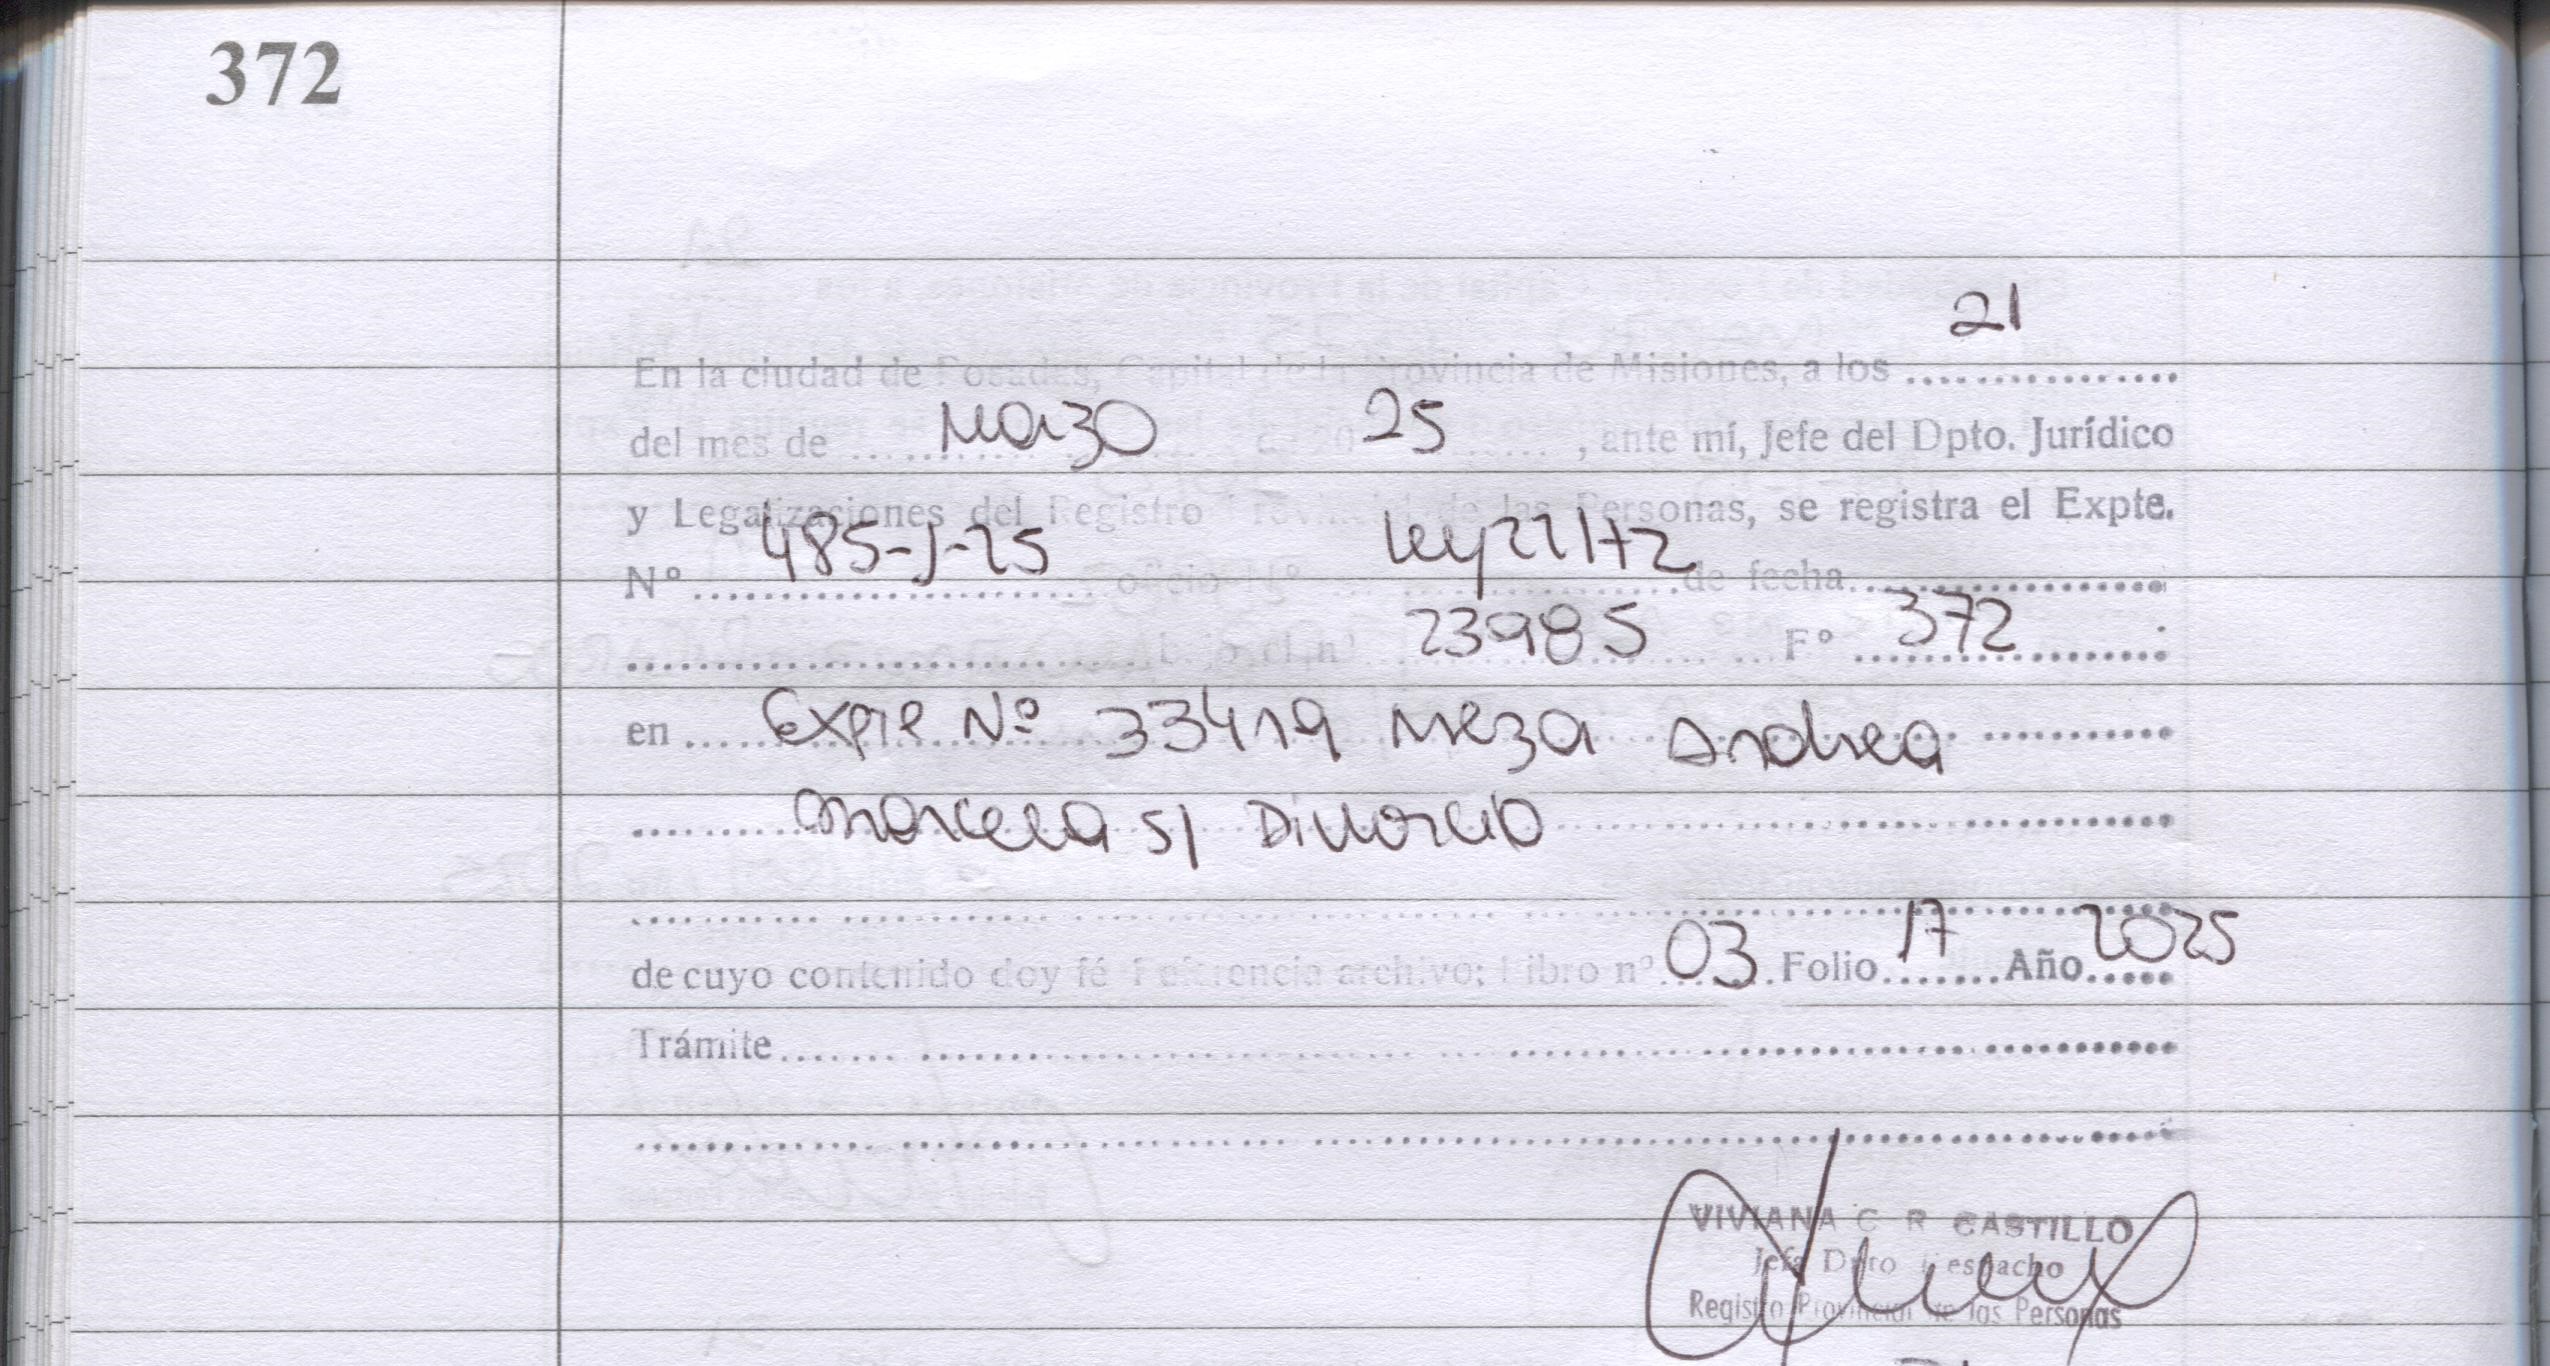 372
21
En la ciudad de Posadas, Capital de la Provincia de Misiones, a los ................
del mes de ..... Marzo ..... de 20 25 ....., ante mí, Jefe del Dpto. Jurídico
y Legalizaciones del Registro Provincial de las Personas, se registra el Expte.
Nº ..... 485-J-25 ..... oficio Nº ..... Ley 22172 ..... de fecha .....
..... bajo el nº ..... 23985 ..... Fº ..... 372 .....
en ..... Expte Nº 33419 Meza Andrea .....
..... Marcela s/ Divorcio .....
de cuyo contenido doy fé Referencia archivo: Libro nº 03 Folio 17 Año 2025
Trámite .....
VIVIANA C R CASTILLO
Jefa Dpto Despacho
Registro Provincial de las Personas